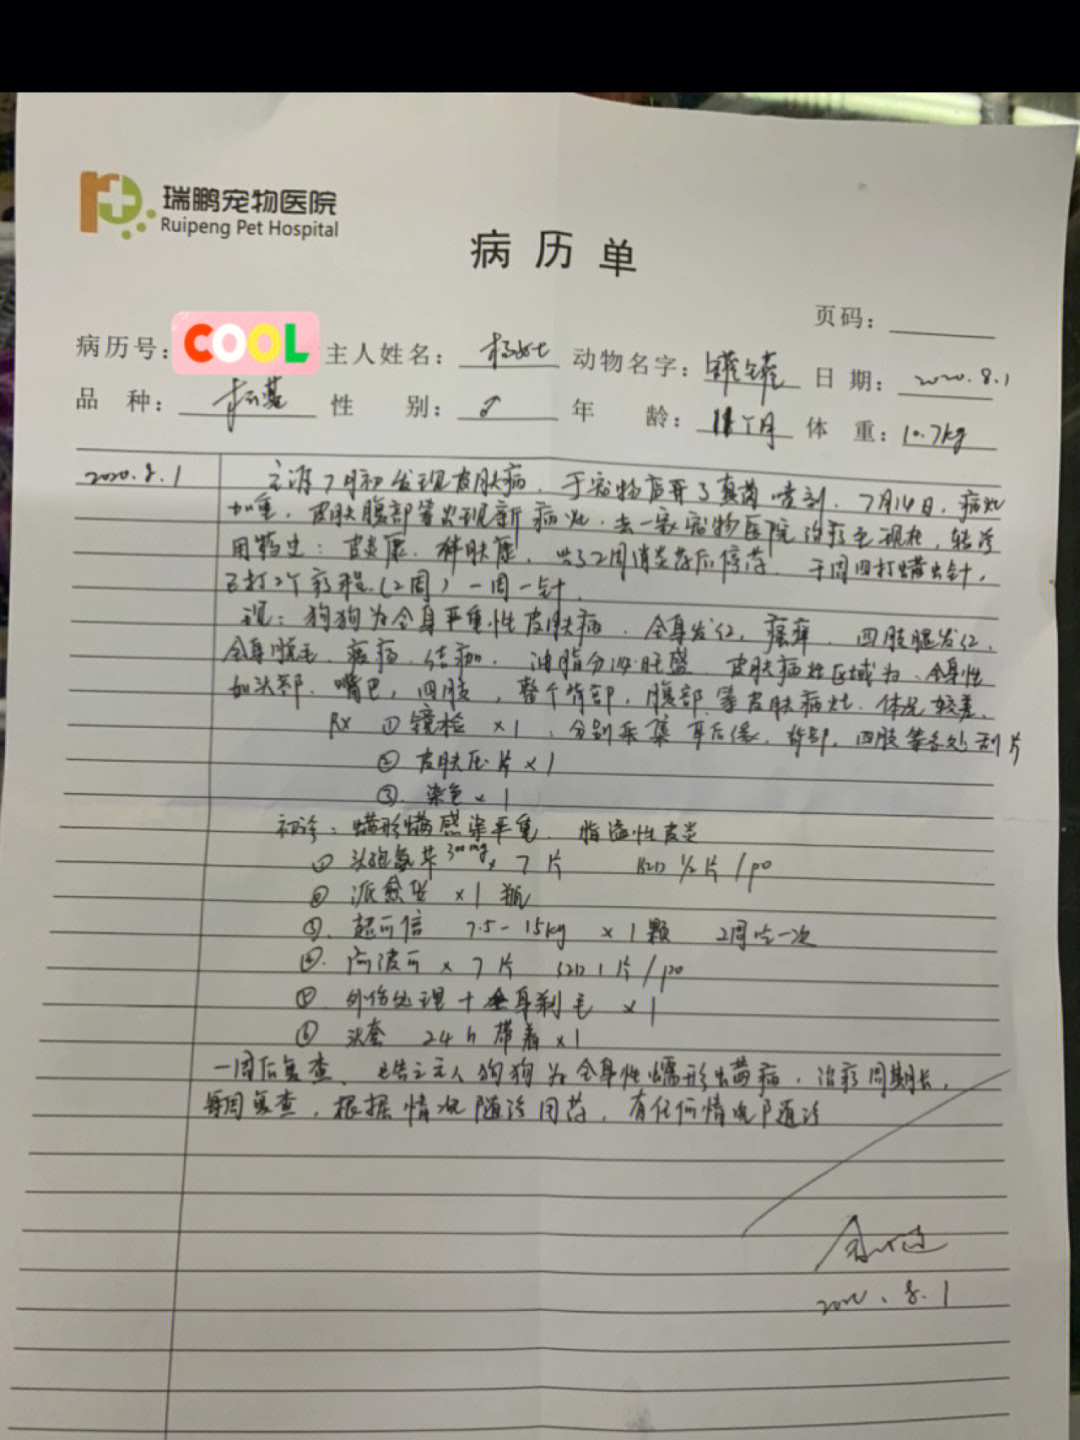 瑞鹏宠物医院
Ruipeng Pet Hospital
病历单
页码：
病历号： COOL 主人姓名： 杨女士 动物名字： 罐罐 日期： 2020.8.1
品种： 柯基 性别： ♂ 年龄： 11个月 体重： 10.7kg
2020.8.1 主诉7月初发现皮肤病，于宠物店开了真菌喷剂，7月14日，病灶
加重，皮肤腹部等出现新病灶，去一家宠物医院治疗至现在，转诊
用药史：皮炎康，科肤康，出了2周消炎药后停药，于周四打螨虫针，
已打2个疗程（2周）一周一针．
现：狗狗为全身严重性皮肤病，全身发红，瘙痒，四肢腿发红，
全身脱毛，结痂，油脂分泌旺盛，皮肤病灶区域为，全身性
如头部，嘴巴，四肢，整个背部，腹部等皮肤病灶，体况较差．
Rx ① 镜检 ×1，分别采集耳后缘，背部，四肢等各处刮片
② 皮肤压片 ×1
③．染色 ×1
初诊：蠕形螨感染严重，脂溢性皮炎
① 头孢氨苄 300mg × 7片 BID ½片/po
② 派 ×1瓶
③．超可信 7.5-15kg ×1颗 2周吃一次
④．阿波可 × 7片 1片/po
⑤．外伤处理+全身剃毛 ×1
⑥ 头套 24h 带着 ×1
一周后复查，告之主人狗狗为全身性蠕形虫螨病，治疗周期长，
每周复查，根据情况随诊用药，有任何情况随诊
2020．8．1